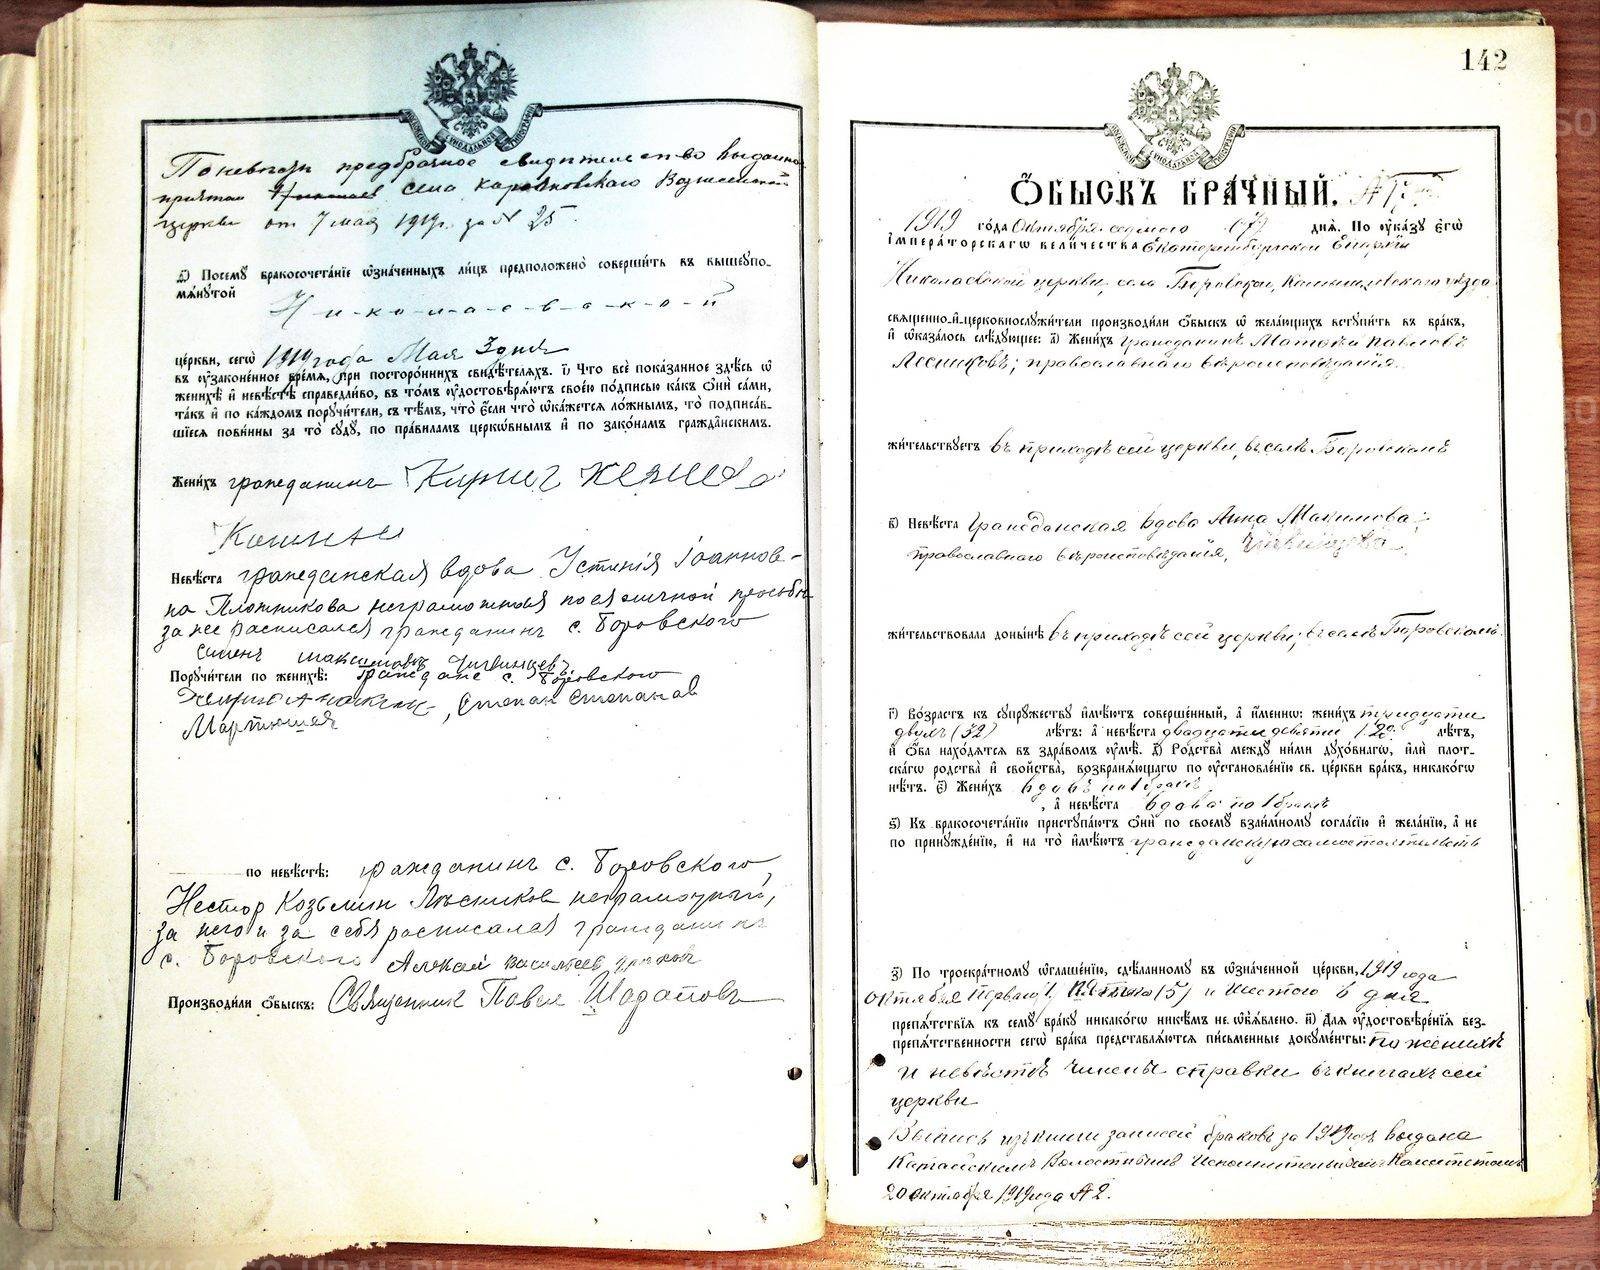 По невесты предбрачное свидѣтельство выданно
причтом села Вознесенской
церкви от 7 мая 1919 г. за № 25.
д҃) Посему бракосочетаніе ѡзначенныхъ лицъ предположено совершить въ вышеупо-
мянутой
Н-и-к-о-л-а-е-в-с-к-о-й
церкви, сегѡ 1919 года Мая 3 дня
въ оузаконенное время, при постороннихъ свидѣтеляхъ. і҃) Что всё показанное здѣсь ѡ
женихѣ и невѣстѣ справедливо, въ томъ оудостовѣряютъ своею подписью какъ ѻни сами,
такъ и по каждомъ поручители, съ тѣмъ, что если что ѡкажется ложнымъ, то подписав-
шіеся повинны за то суду, по правиламъ церковнымъ и по законамъ гражданскимъ.
Женихъ гражданинъ
Невѣста гражданская вдова Устинія Іоаннов-
на Плотникова неграмотная по ея личной просьбѣ
за нее расписался гражданинъ с. Боровского
Поручители по женихѣ: Граждане с. Боровского
Степан Степанов
Мартюшев
по невѣстѣ: гражданинъ с. Боровского,
Нестор Козьмин Лѣсников неграмотный,
за него и за себя расписался гражданинъ
с. Боровского Алексей Васильев
Производили ѻбыскъ: Священник Павел Шарапов
142
Ѻбыскъ брачный. №
1919 года Октября седьмого (7) дня. По указу Егѡ
Императорскагѡ Величества Екатеринбургской Епархіи
Николаевской церкви, села Боровского, Камышловского уѣзда
священно-и-церковнослужители производили ѻбыскъ ѡ желающихъ вступить въ бракъ,
и ѡказалось слѣдующее: а҃) Женихъ Гражданинъ Матѳей Павловъ
Лесниковъ; православнаго вѣроисповѣданія.
жительствуетъ въ приходѣ сей церкви, въ селѣ Боровскомъ
в҃) Невѣста Гражданская вдова Анна Макимова
православнаго вѣроисповѣданія,
жительствовала донынѣ въ приходѣ сей церкви, въ селѣ Боровскомъ.
г҃) Возрастъ къ супружеству имѣютъ совершенный, а именно: женихъ тридцати
двухъ (32) лѣтъ: а невѣста двадцати девяти (29) лѣтъ,
и ѻба находятся въ здравомъ оумѣ. д҃) Родства между ними духовнагѡ, или плот-
скагѡ родства и свойства, возбраняющагѡ по оустановленію св. церкви бракъ, никакогѡ
нѣтъ. е҃) Женихъ вдовъ по 1 бракѣ
, а невѣста вдова по 1 бракѣ
ѕ҃) Къ бракосочетанію приступаютъ ѻни по своему взаимному согласію и желанію, а не
по принужденію, и на то имѣютъ гражданскую самостоятельность
з҃) По троекратному ѡглашенію, сдѣланному въ ѡзначенной церкви, 1919 года
Октября первого 1, пятого (5) и шестого 6 дня
препятствія къ сему браку никакогѡ никѣмъ не ѡбъявлено. и҃) Для оудостовѣренія без-
препятственности сегѡ брака представляются письменные документы: по женихѣ
и невѣстѣ чинены справки въ книгахъ сей
церкви
Выпись изъ книги записей браковъ за 1919 годъ выдана
Катайскимъ Волостнымъ Исполнительнымъ Комитетомъ
20 октября 1919 года № 2.